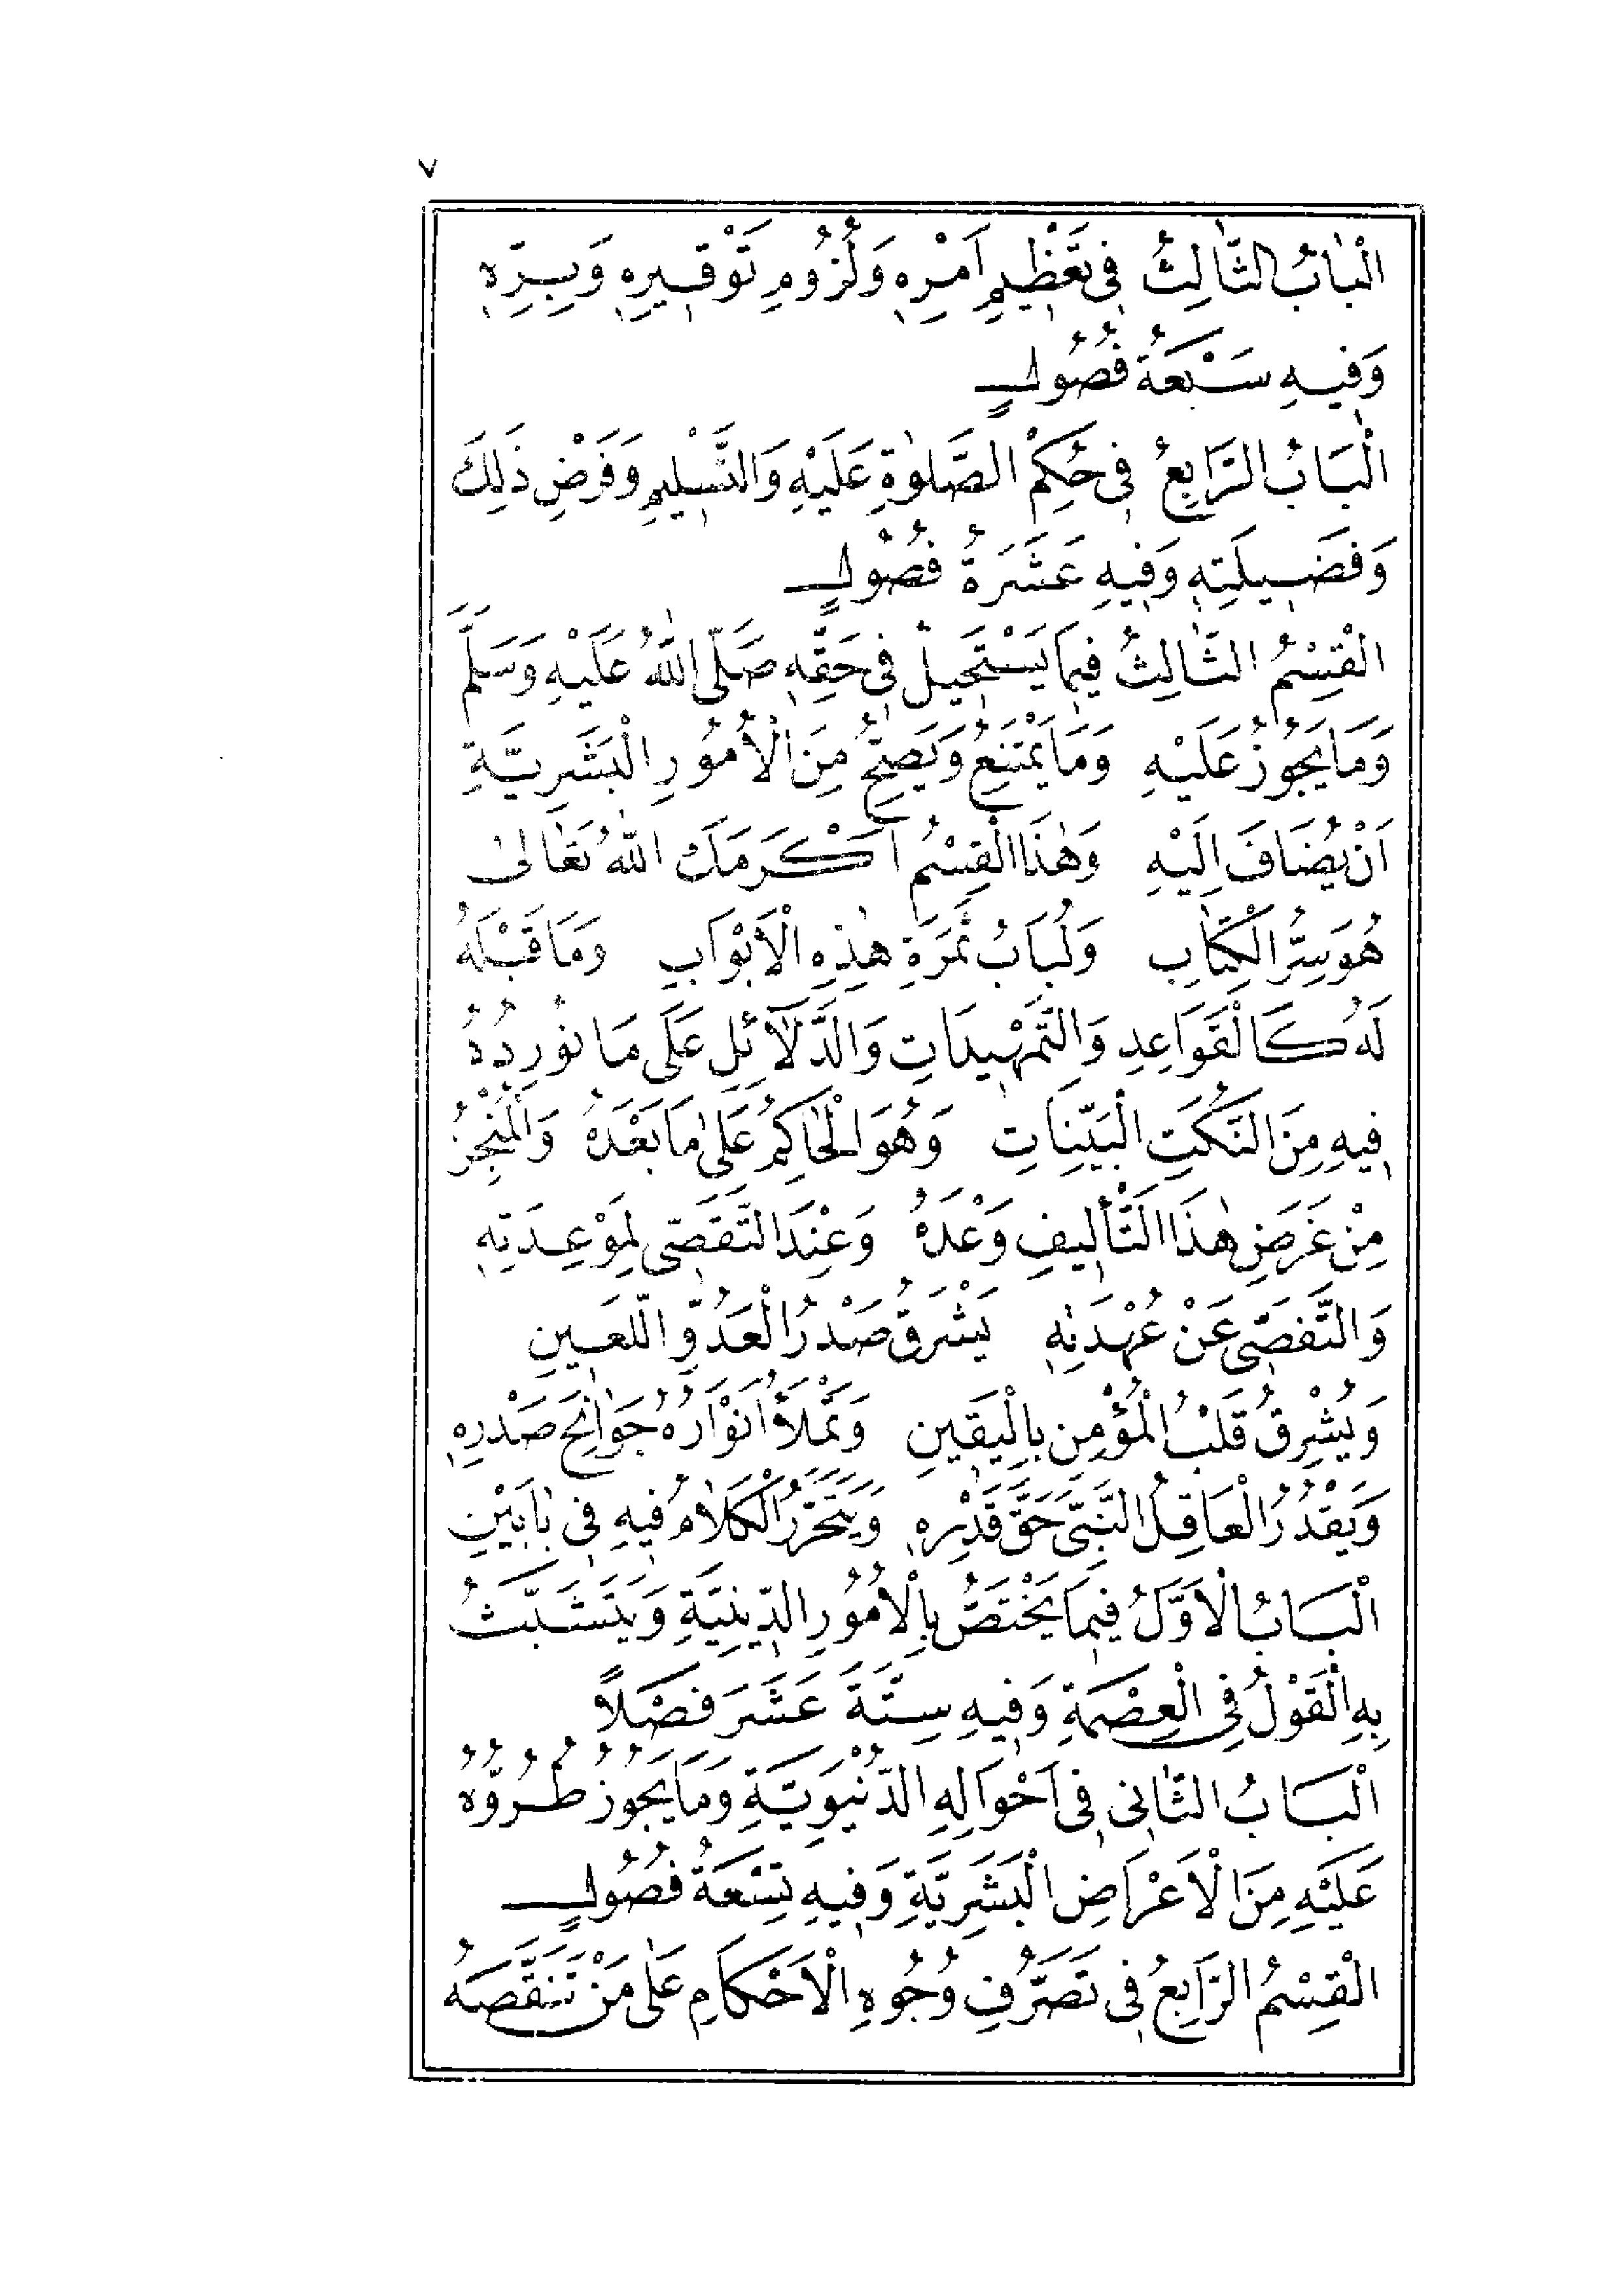 ٧
اَلْبَابُ الثَّالِثُ فِى تَعْظِيمِ اَمْرِهِ وَلُزُومِ تَوْقِيرِهِ وَبِرِّهِ
وَفِيهِ سَبْعَةُ فُصُولٍ
اَلْبَابُ الرَّابِعُ فِى حُكْمِ الصَّلٰوةِ عَلَيْهِ وَالتَّسْلِيمِ وَفَرْضِ ذَلِكَ
وَفَضِيلَتِهِ وَفِيهِ عَشَرَةُ فُصُولٍ
الْقِسْمُ الثَّالِثُ فِيمَا يَسْتَحِيلُ فِى حَقِّهِ صَلَّى اللهُ عَلَيْهِ وَسَلَّمَ
وَمَا يَجُوزُ عَلَيْهِ وَمَا يَمْتَنِعُ وَيَصِحُّ مِنَ الْأُمُورِ الْبَشَرِيَّةِ
اَنْ يُضَافَ اِلَيْهِ وَهٰذَا الْقِسْمُ اَكْرَمَكَ اللهُ تَعَالٰى
هُوَ سِرُّ الْكِتَابِ وَلُبَابُ ثَمَرَةِ هٰذِهِ الْأَبْوَابِ وَمَا قَبْلَهُ
لَهُ كَالْقَوَاعِدِ وَالتَّمْهِيدَاتِ وَالدَّلَائِلِ عَلَى مَا نُورِدُهُ
فِيهِ مِنَ النُّكَتِ الْبَيِّنَاتِ وَهُوَ الْحَاكِمُ عَلٰى مَا بَعْدَهُ وَالْمُنْجِزُ
مِنْ غَرَضِ هٰذَا التَّأْلِيفِ وَعْدَهُ وَعِنْدَ التَّقَصِّى لِمَوْعِدَتِهِ
وَالتَّفَصِّى عَنْ عُهْدَتِهِ يَشْرَقُ صَدْرُ الْعَدُوِّ اللَّعِينِ
وَيُشْرِقُ قَلْبُ الْمُؤْمِنِ بِالْيَقِينِ وَتَمْلَأُ اَنْوَارُهُ جَوَانِحَ صَدْرِهِ
وَيَقْدُرُ الْعَاقِلُ النَّبِىَّ حَقَّ قَدْرِهِ وَيَتَحَرَّرُ الْكَلَامُ فِيهِ فِى بَابَيْنِ
اَلْبَابُ الْاَوَّلُ فِيمَا يَخْتَصُّ بِالْأُمُورِ الدِّينِيَّةِ وَيَتَشَبَّثُ
بِهِ الْقَوْلُ فِى الْعِصْمَةِ وَفِيهِ سِتَّةَ عَشَرَ فَصْلًا
اَلْبَابُ الثَّانِى فِى اَحْوَالِهِ الدُّنْيَوِيَّةِ وَمَا يَجُوزُ طُرُوُّهُ
عَلَيْهِ مِنَ الْاَعْرَاضِ الْبَشَرِيَّةِ وَفِيهِ تِسْعَةُ فُصُولٍ
اَلْقِسْمُ الرَّابِعُ فِى تَصَرُّفِ وُجُوهِ الْاَحْكَامِ عَلٰى مَنْ تَنَقَّصَهُ